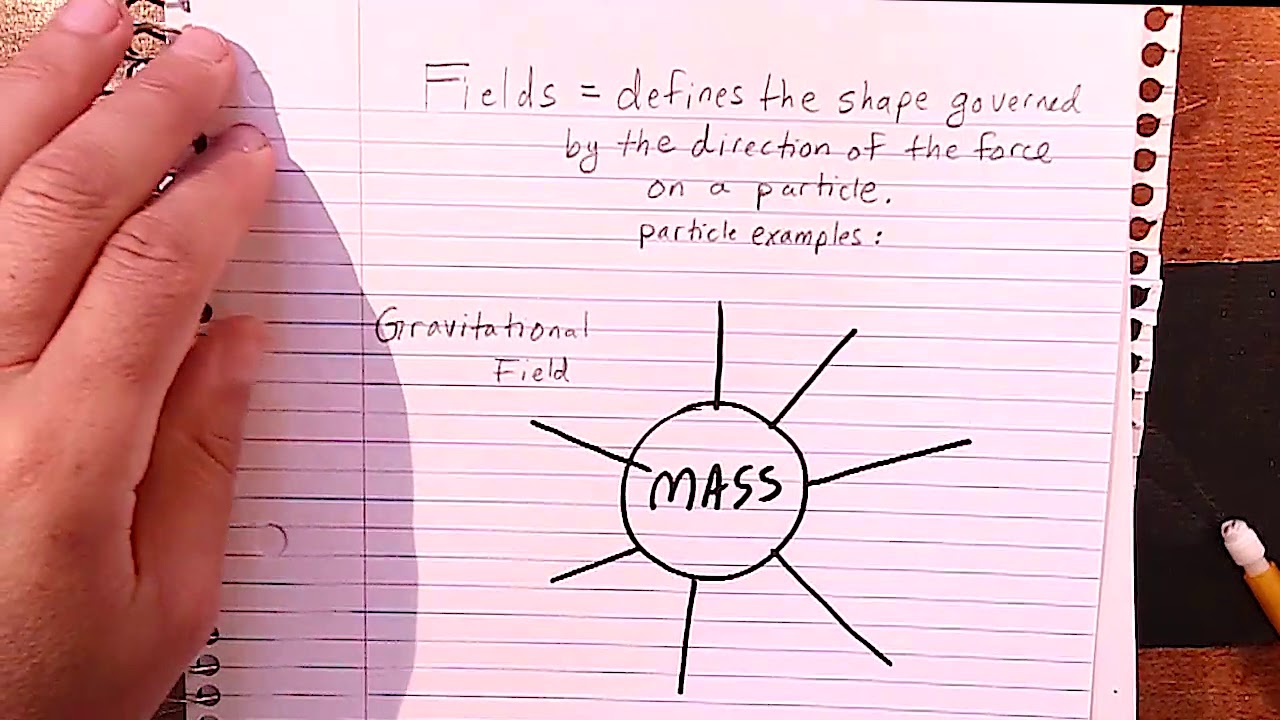 Fields = defines the shape governed
by the direction of the force
on a particle.
particle examples:
Gravitational
Field
MASS